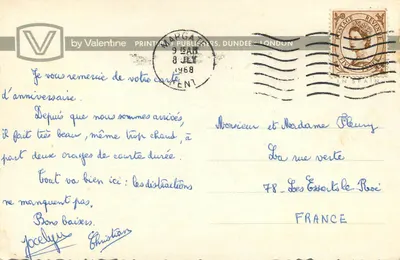 V
by Valentine
PRINTERS & PUBLISHERS, DUNDEE - LONDON
MARGATE
9 15AM
8 JLY
1968
KENT
Je vous remercie de votre carte
d'anniversaire.
Depuis que nous sommes arrivés,
il fait très beau, même trop chaud, à
part deux orages de courte durée.
Tout va bien ici : les distractions
ne manquent pas.
Bons baisers.
Jocelyne
Christian
Monsieur et Madame Fleury
La rue verte
78 - Les Essarts-le-Roi
FRANCE